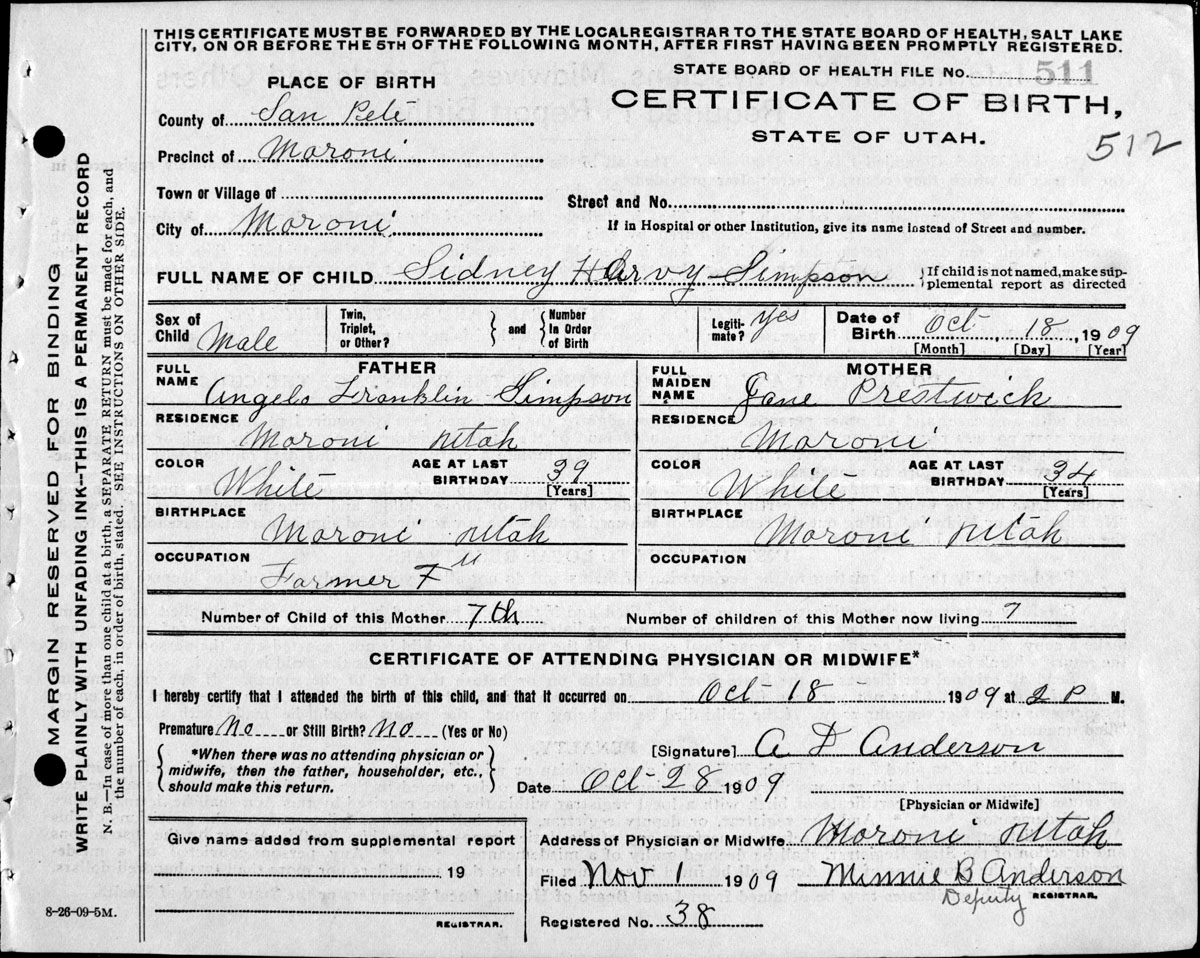 THIS CERTIFICATE MUST BE FORWARDED BY THE LOCAL REGISTRAR TO THE STATE BOARD OF HEALTH, SALT LAKE
CITY, ON OR BEFORE THE 5TH OF THE FOLLOWING MONTH, AFTER FIRST HAVING BEEN PROMPTLY REGISTERED.
STATE BOARD OF HEALTH FILE No. 511
CERTIFICATE OF BIRTH,
STATE OF UTAH.
512
PLACE OF BIRTH
County of San Pete
Precinct of Moroni
Town or Village of
City of Moroni
Street and No.
If in Hospital or other Institution, give its name instead of Street and number.
FULL NAME OF CHILD Sidney Harvy Simpson
If child is not named, make sup-
plemental report as directed
Sex of Child Male
Twin, Triplet, or Other? and Number In Order of Birth
Legiti-mate? Yes
Date of Birth Oct 18, 1909
[Month] [Day] [Year]
FATHER
FULL NAME Angelo Franklin Simpson
RESIDENCE Moroni Utah
COLOR White AGE AT LAST BIRTHDAY 39 [Years]
BIRTHPLACE Moroni Utah
OCCUPATION Farmer F
MOTHER
FULL MAIDEN NAME Jane Prestwich
RESIDENCE Moroni
COLOR White AGE AT LAST BIRTHDAY 34 [Years]
BIRTHPLACE Moroni Utah
OCCUPATION
Number of Child of this Mother 7th Number of children of this Mother now living 7
CERTIFICATE OF ATTENDING PHYSICIAN OR MIDWIFE*
I hereby certify that I attended the birth of this child, and that it occurred on Oct 18 1909 at 2 P M.
Premature No or Still Birth? No (Yes or No)
*When there was no attending physician or
midwife, then the father, householder, etc.,
should make this return.
[Signature] A D Anderson
Date Oct 28 1909
[Physician or Midwife]
Give name added from supplemental report
19
REGISTRAR.
Address of Physician or Midwife. Moroni Utah
Filed Nov 1 1909 Minnie B Anderson
Deputy REGISTRAR.
Registered No. 38
8-26-09-5M.
MARGIN RESERVED FOR BINDING
WRITE PLAINLY WITH UNFADING INK--THIS IS A PERMANENT RECORD
N. B.—In case of more than one child at a birth, a SEPARATE RETURN must be made for each, and
the number of each, in order of birth, stated. SEE INSTRUCTIONS ON OTHER SIDE.